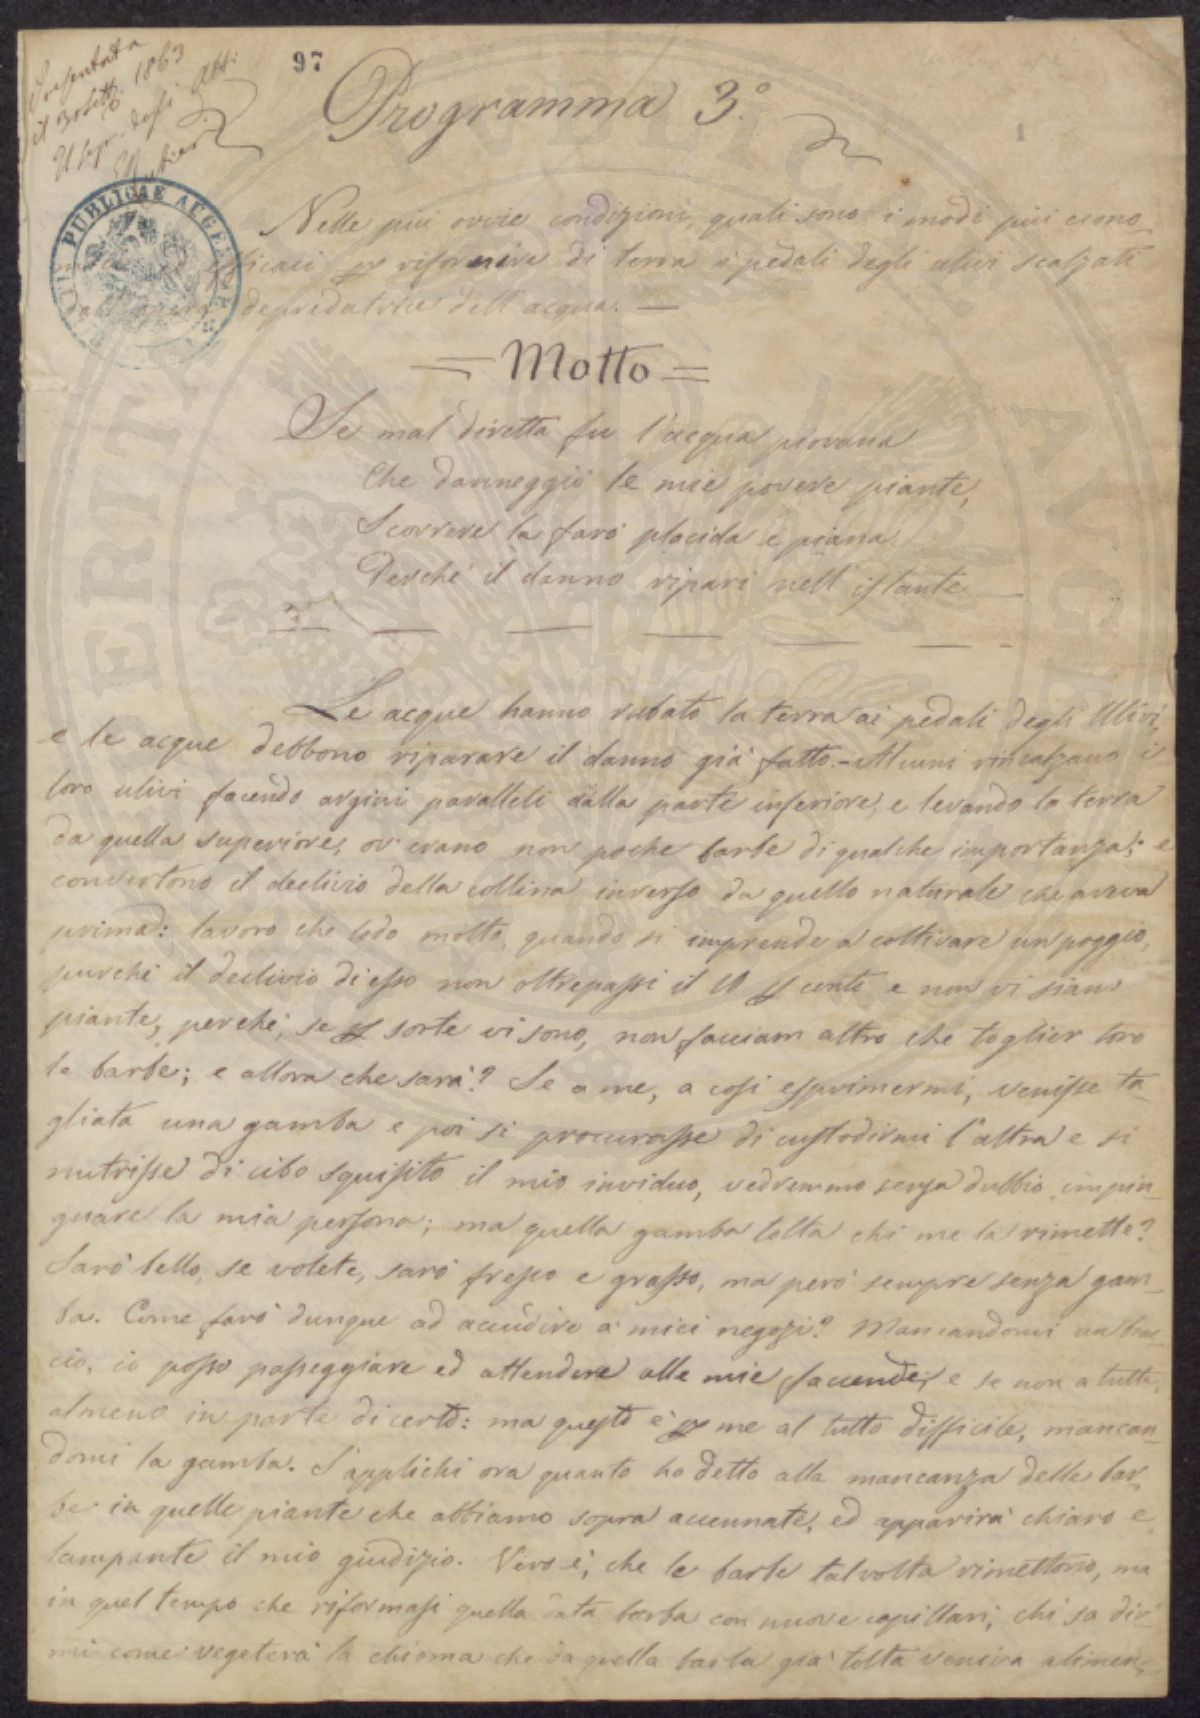 Presentata
il 30 sett. 1863
Il Segr. degli Atti
97
Programma 3.°
1
Nelle più ovvie condizioni, quali sono i modi più econo-
mici ed efficaci per rifornire di terra i pedali degli ulivi scalzati
dall'opera depredatrice dell'acqua. —
= Motto =
Se mal diretta fu l'acqua piovana
Che danneggiò le mie povere piante,
Scorrere la farò placida e piana
Perché il danno ripari nell'istante
Le acque hanno rubato la terra ai pedali degli Ulivi,
e le acque debbono riparare il danno già fatto. - Alcuni rincalzano i
loro ulivi facendo argini paralleli dalla parte inferiore, e levando la terra
da quella superiore, ov'erano non poche barbe di qualche importanza; e
convertono il declivio della collina inverso da quello naturale che aveva
prima: lavoro che lodo molto, quando si imprende a coltivare un poggio,
purché il declivio di esso non oltrepassi il 10 per cento e non vi siano
piante, perché, se per sorte vi sono, non facciam altro che toglier loro
le barbe; e allora che sarà? Se a me, a così esprimermi, venisse ta-
gliata una gamba e poi si procurasse di custodirmi l'altra e si
nutrisse di cibo squisito il mio inviduo, vedremmo senza dubbio impin-
guare la mia persona; ma quella gamba tolta chi me la rimette?
Sarò bello, se volete, sarò fresco e grasso, ma però sempre senza gam-
ba. Come farò dunque ad accudire a' miei negozi? Mancandomi un brac-
cio, io posso passeggiare ed attendere alle mie faccende, e se non a tutte,
almeno in parte di certo: ma questo è per me al tutto difficile, mancan-
domi la gamba. S'applichi ora quanto ho detto alla mancanza delle bar-
be in quelle piante che abbiamo sopra accennate, ed apparirà chiaro e
lampante il mio giudizio. Vero è, che le barbe talvolta rimettono, ma
in quel tempo che riformasi quella data barba con nuove capillari, chi sa dir-
mi come vegeterà la chioma che da quella barba già tolta veniva alimen-